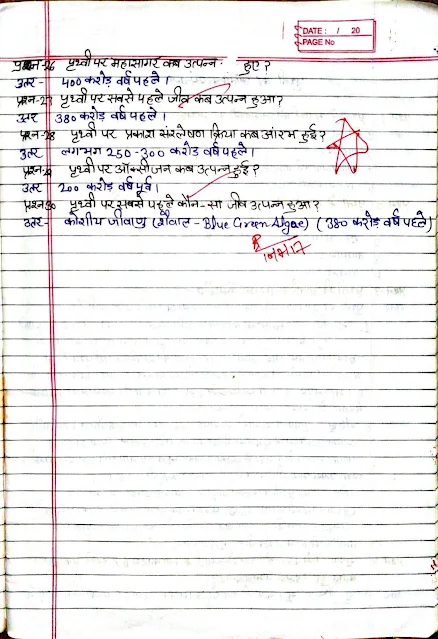 DATE: / 20
PAGE No
प्रश्न-26 पृथ्वी पर महासागर कब उत्पन्न हुए ?
उत्तर - 400 करोड़ वर्ष पहले ।
प्रश्न-27 पृथ्वी पर सबसे पहले जीव कब उत्पन्न हुआ ?
उत्तर 380 करोड़ वर्ष पहले ।
प्रश्न-28 पृथ्वी पर प्रकाश संश्लेषण क्रिया कब आरंभ हुई ?
उत्तर लगभग 250-300 करोड़ वर्ष पहले ।
प्रश्न-29 पृथ्वी पर ऑक्सीजन कब उत्पन्न हुई ?
उत्तर 200 करोड़ वर्ष पूर्व ।
प्रश्न-30 पृथ्वी पर सबसे पहले कौन-सा जीव उत्पन्न हुआ ?
उत्तर- कोशीय जीवाणु (शैवाल - Blue Green Algae) (380 करोड़ वर्ष पहले)